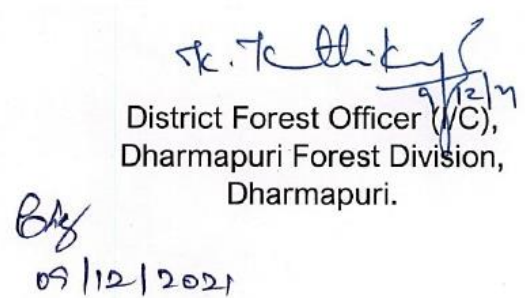 9/12/21
District Forest Officer (I/C),
Dharmapuri Forest Division,
Dharmapuri.
09/12/2021